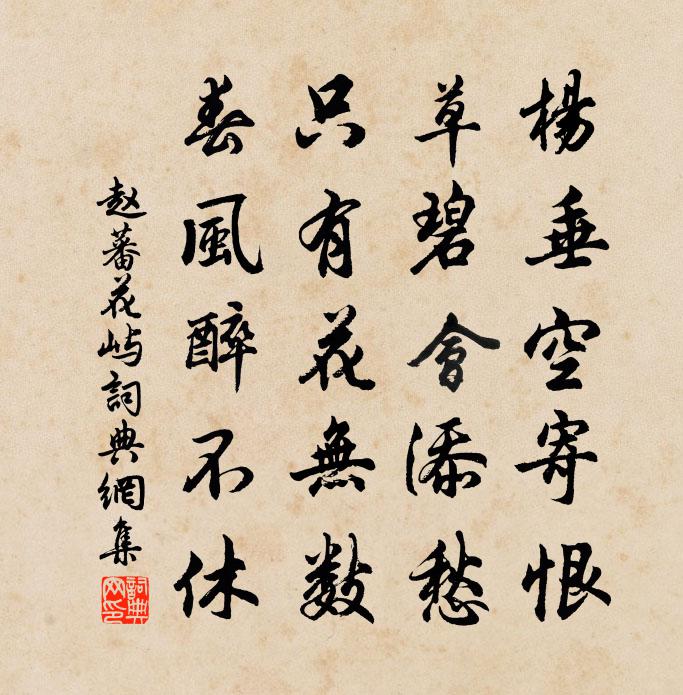 楊垂空寄恨
草碧會添愁
只有花無数
春風醉不休
赵蕃花屿詞典網集
詞典网印